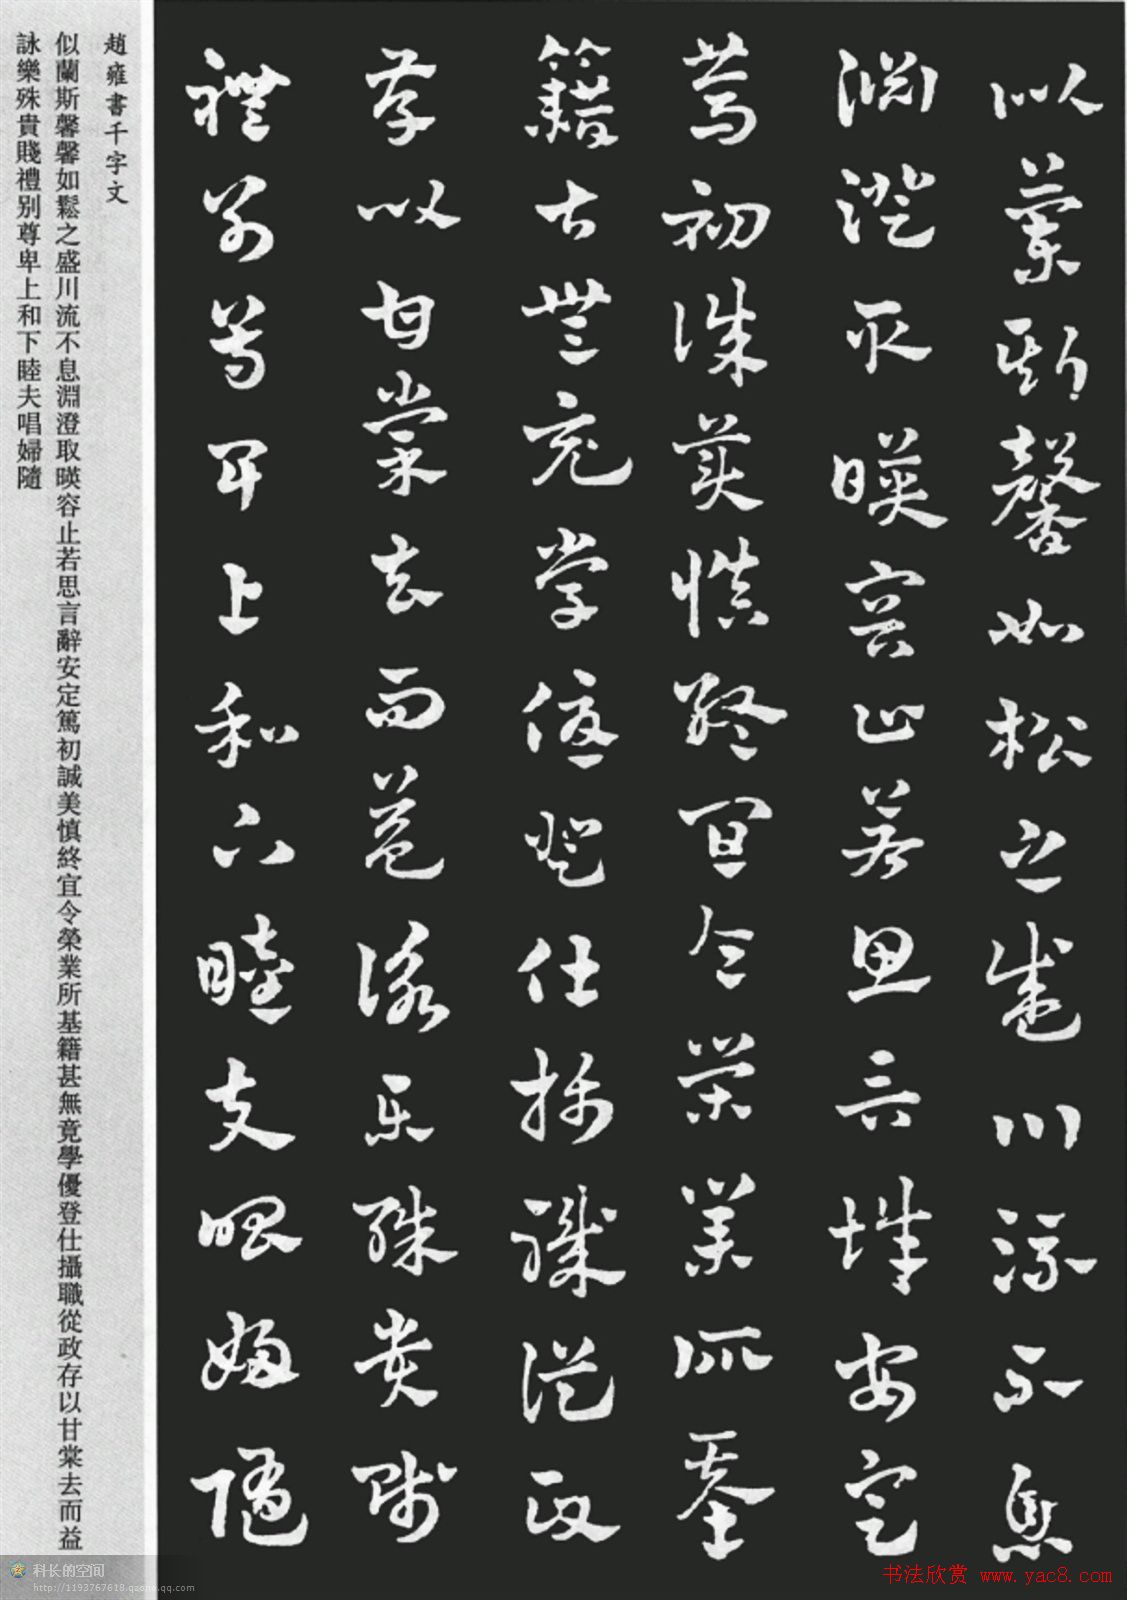 似蘭斯馨如松之盛川流不息
淵澄取暎容止若思言辭安定
篤初誠美慎終宜令榮業所基
籍甚無竟學優登仕攝職從政
存以甘棠去而益詠樂殊貴賤
禮别尊卑上和下睦夫唱婦隨
趙雍書千字文
似蘭斯馨馨如鬆之盛川流不息淵澄取暎容止若思言辭安定篤初誠美慎終宜令榮業所基籍甚無竟學優登仕攝職從政存以甘棠去而益
詠樂殊貴賤禮别尊卑上和下睦夫唱婦隨
科长的空间
http://1193767618.qzone.qq.com
书法欣赏 www.yac8.com